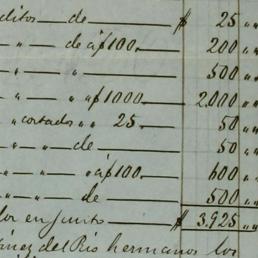 ditos — de — $ 25 „
„ — „ — de á $ 100. — 200 „
„ — „ — „ — 500 „
„ — „ — „ á $ 1000 — 2.000 „
„ cortados „ 25 — 50 „
„ — „ — de — 50 „
„ — „ — „ á $ 100. — 600 „
„ — „ — de — 500 „
lor en junto — $ 3.925 „
del Rio hermanos los